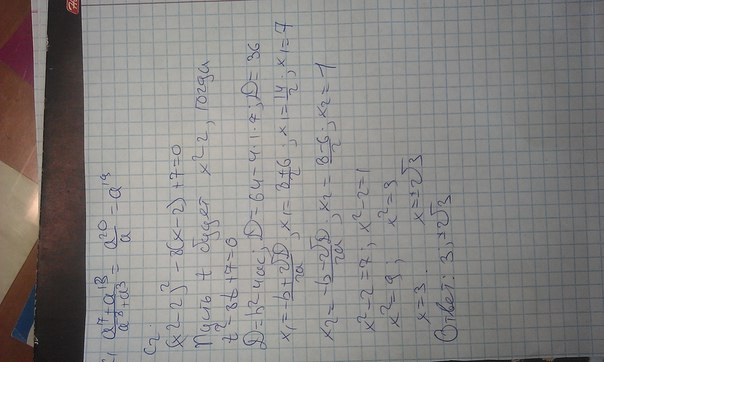 a⁷+a¹³/a³+a³ = a²⁰/a = a¹⁹
C2
(x²-2)² - 8(x-2)+7=0
Пусть t будет x²-2, тогда
t²-8t+7=0
D=b²-4ac; D=64-4·1·7; D=36
x₁=-b+√D/2a; x₁=8+6/2; x₁=14/2; x₁=7
x₂=-b-√D/2a; x₂=8-6/2; x₂=1
x²-2=7; x²-2=1
x²=9; x²=3
x=3. x=±√3
Ответ: 3, ±√3